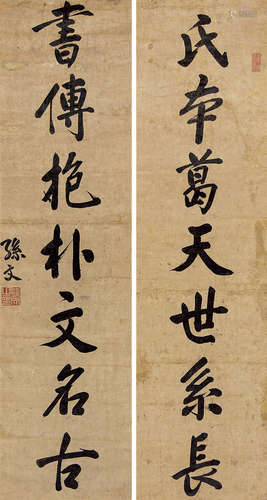 氏本葛天世系長
書傳抱朴文名古
孫文